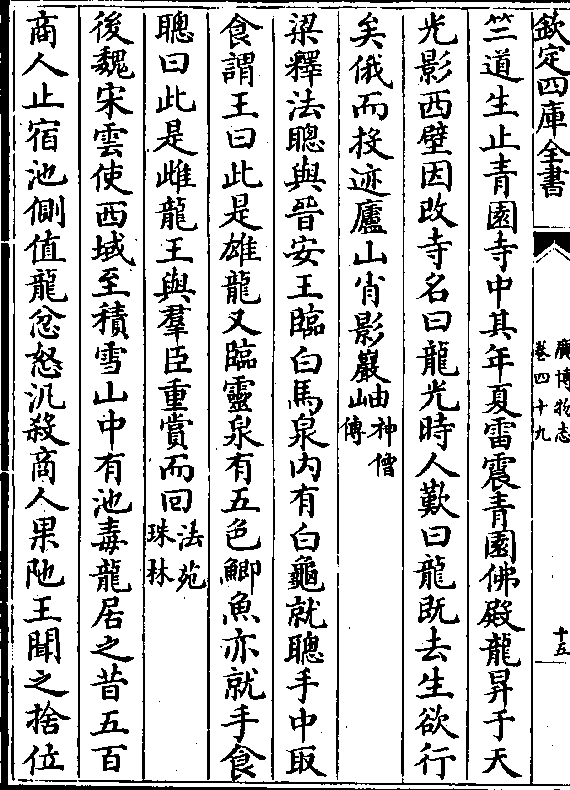 欽定四庫全書
廣博物志
卷四十九
十五
竺道生止青園寺中其年夏雷震青園佛殿龍昇于天
光影西壁因改寺名曰龍光時人歎曰龍既去生欲行
矣俄而投迹廬山肖影巖岫神僧
傳
梁釋法聰與晉安王臨白馬泉内有白龜就聰手中取
食謂王曰此是雄龍又臨靈泉有五色鯽魚亦就手食
聰曰此是雌龍王與羣臣重賞而回法苑
珠林
後魏宋雲使西域至積雪山中有池毒龍居之昔五百
商人止宿池側值龍忿怒汎殺商人果陁王聞之捨位